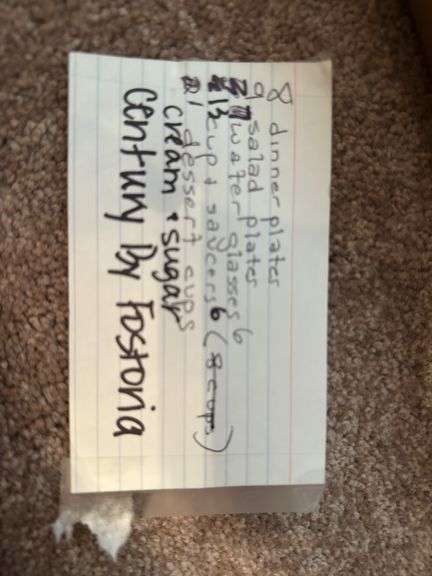 8 dinner plates
9 salad plates
water glasses 6
cup + saucers 6 (8 cups)
dessert cups
cream + sugar
Century By Fostoria